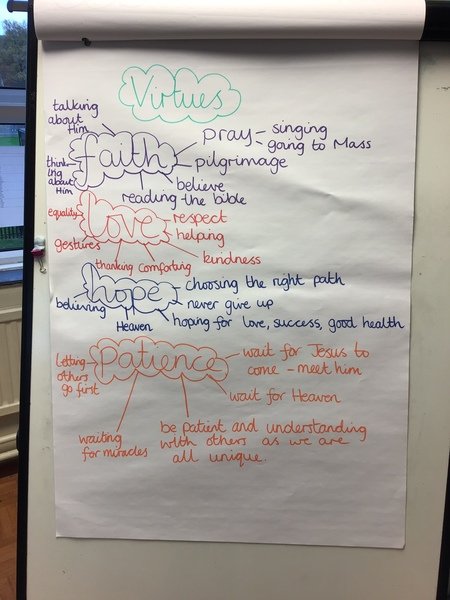 Virtues
talking
about
Him
faith
pray - singing
going to Mass
pilgrimage
think
ing
about
Him
believe
reading the bible
equality
love
respect
helping
gestures
kindness
thanking comforting
hope
choosing the right path
believing
never give up
Heaven
hoping for love, success, good health
Letting
others
go first
Patience
wait for Jesus to
come - meet him
wait for Heaven
waiting
for miracles
be patient and understanding
with others as we are
all unique.